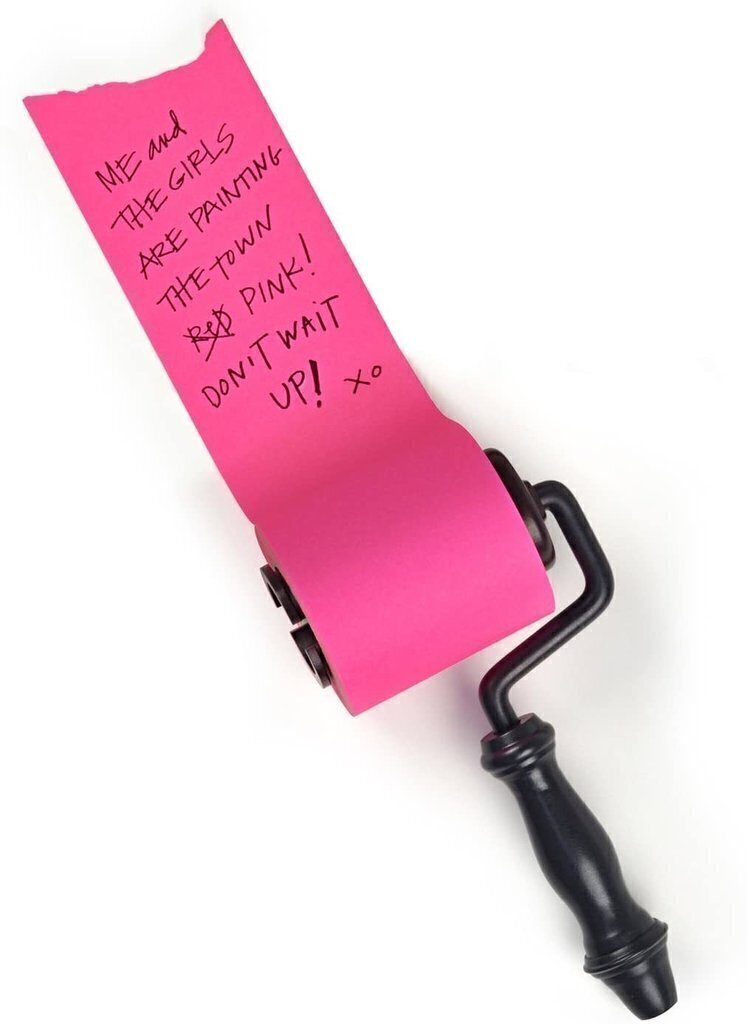 ME and
THE GIRLS
ARE PAINTING
THE TOWN
RED PINK!
DON'T WAIT
UP! XO